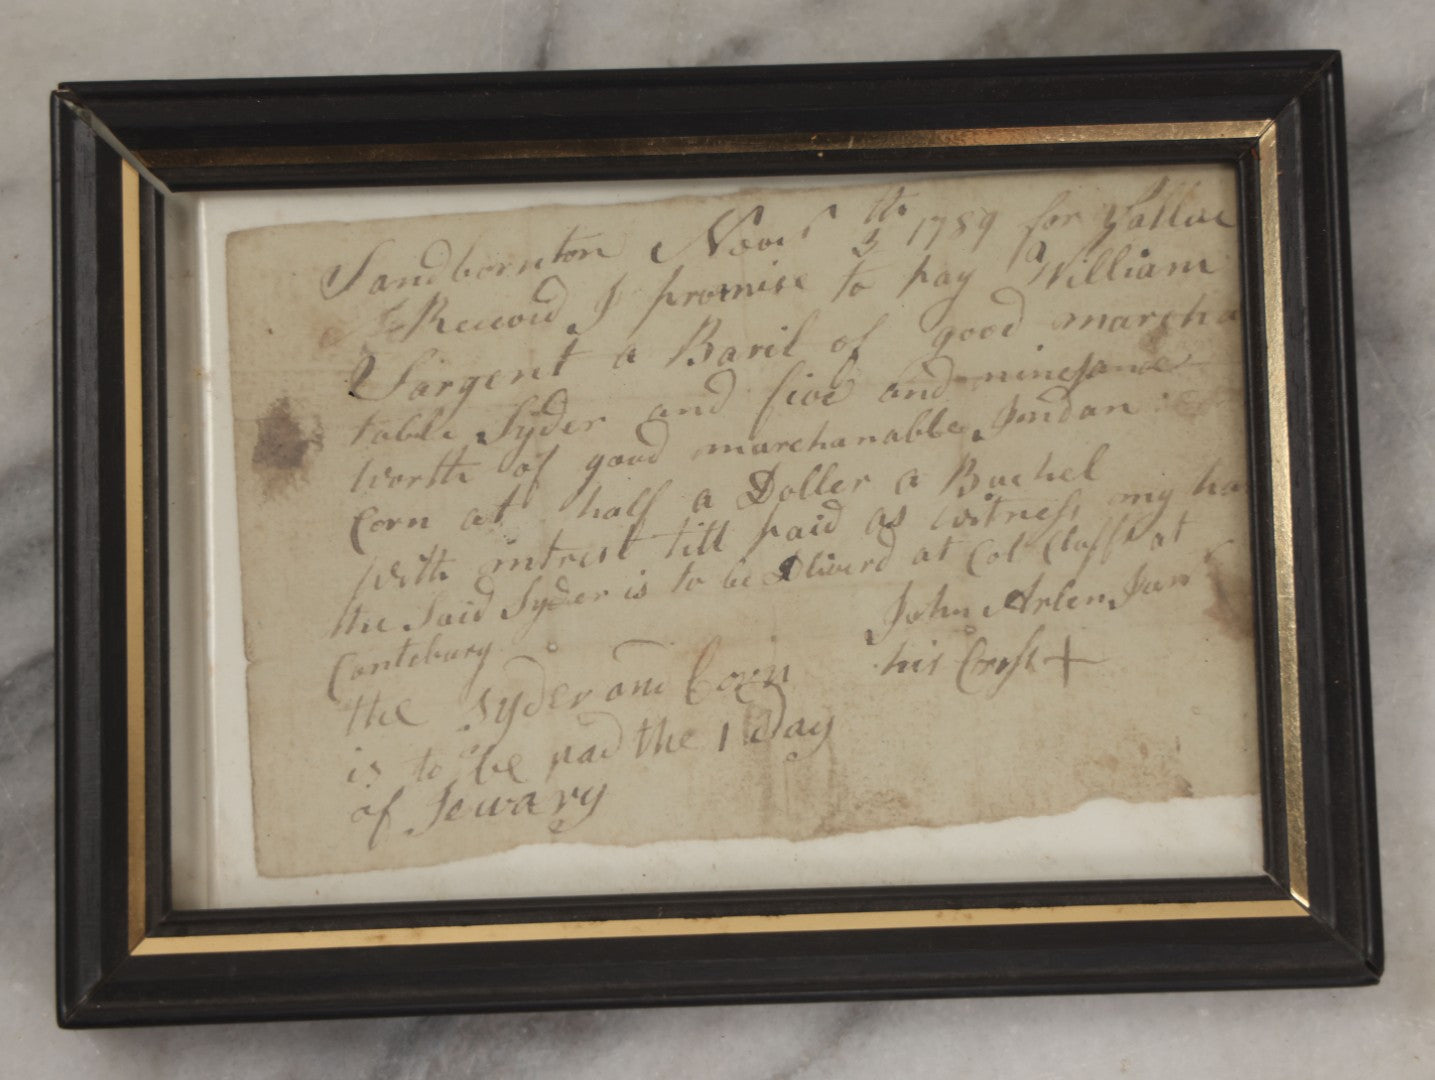 Sandbornton Novr 3th 1789 for Vallue
Reeceivd I promise to pay William
Sargent a Baril of good marcha
table Syder and five and ninepance
worth of good marchanable Indan
Corn at half a Doller a Buchel
with intrest till paid as witness my ha
the Said Syder is to be Dliverd at Col Cluffs at
Conteburg
John Arlen Junr
his Crost +
the Syder and Corn
is to be pad the 1 day
of Jewary